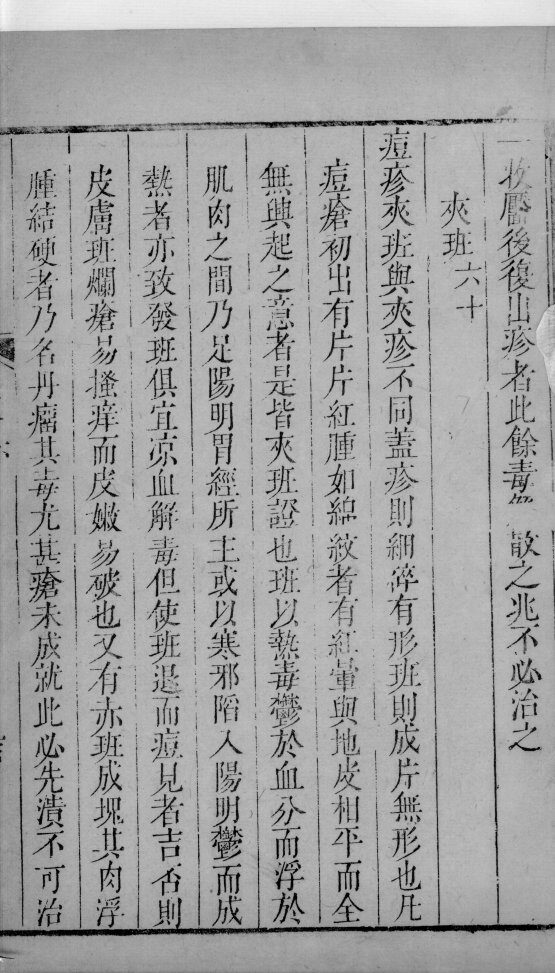 一收靨後復出疹者此餘毒 散之兆不必治之
夾班六十
痘疹夾班與夾疹不同蓋疹則細碎有形班則成片無形也凡
痘瘡初出有片片紅腫如綿紋者有紅暈與地皮相平而全
無興起之意者是皆夾班證也班以熱毒鬱於血分而浮於
肌肉之間乃足陽明胃經所主或以寒邪陷入陽明鬱而成
熱者亦致發班俱宜凉血解毒但使班退而痘見者吉否則
皮膚班爛瘡易搔痒而皮嫩易破也又有赤班成塊其肉浮
腫結硬者乃名丹瘤其毒尤甚瘡未成就此必先潰不可治